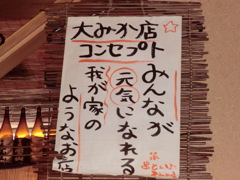 大みか店
コンセプト
みんなが
元気になれる
我が家の
ようなお店